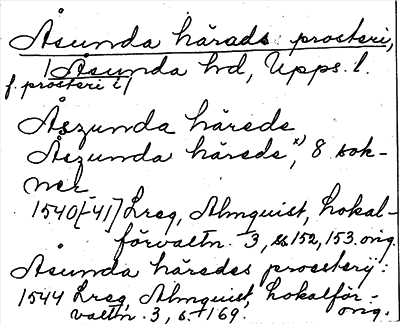 Åsunda härads prosteri,
/Åsunda hd, Upps. l.
f. prosteri i/
Åszunda härede
Åszunda härede, x) 8 sok-
ner
1540[-41] Lreg, Almquist, Lokal-
förvaltn. 3, ss 152, 153. orig.
Åsunda häredes proesterij:
1544 Lreg, Almquist, Lokalför-
valtn. 3, s. 169. orig.